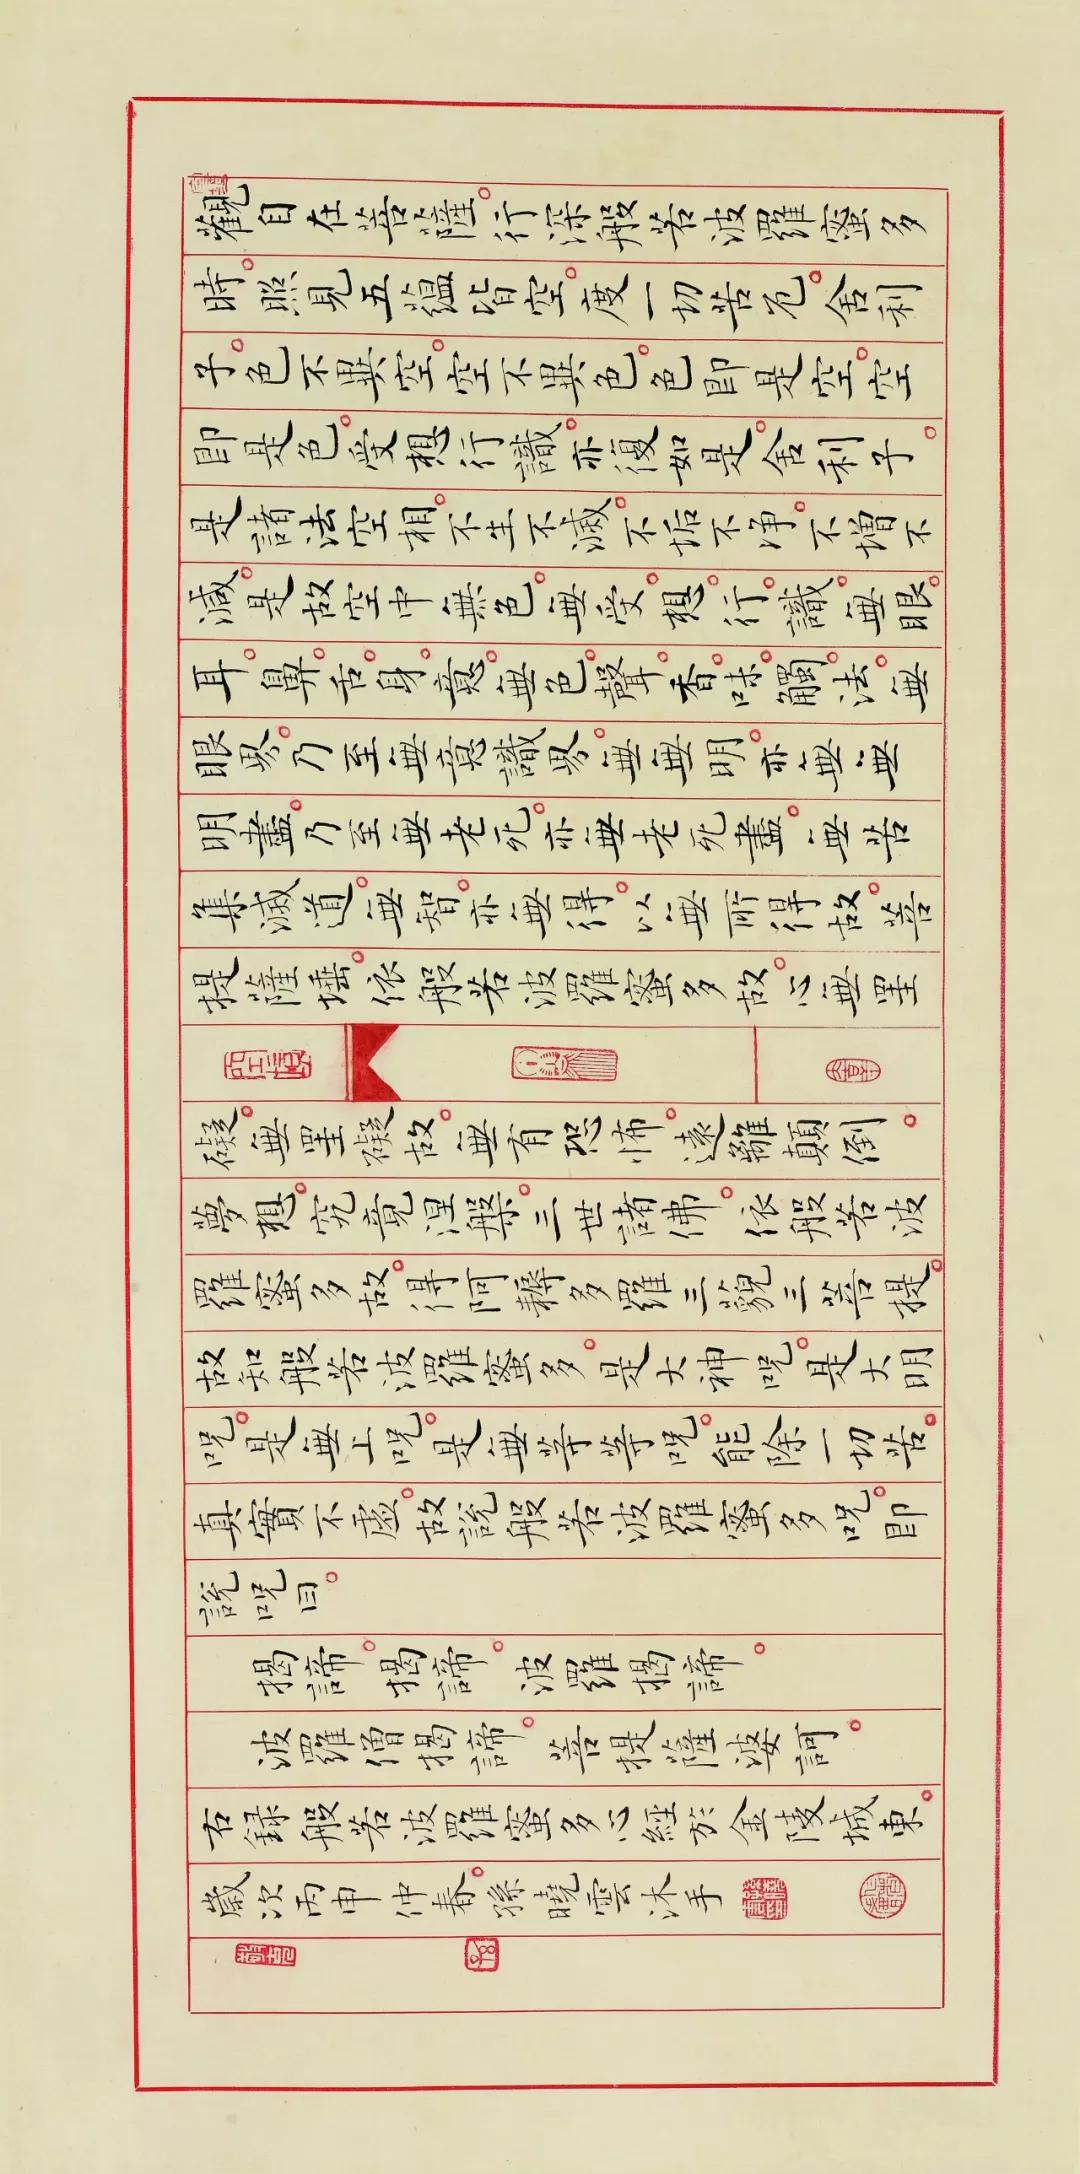 觀自在菩薩。行深般若波羅蜜多
時。照見五蘊皆空。度一切苦厄。舍利
子。色不異空。空不異色。色即是空。空
即是色。受想行識。亦復如是。舍利子。
是諸法空相。不生不滅。不垢不净。不增不
減。是故空中無色。無受。想。行。識。無眼。
耳。鼻。舌。身。意。無色。聲。香。味。觸。法。無
眼界。乃至無意識界。無無明。亦無無
明盡。乃至無老死。亦無老死盡。無苦
集滅道。無智。亦無得。以無所得故。菩
提薩埵。依般若波羅蜜多故。心無罣
礙。無罣礙故。無有恐怖。遠離顛倒。
夢想。究竟涅槃。三世諸佛。依般若波
羅蜜多故。得阿耨多羅三藐三菩提。
故知般若波羅蜜多。是大神咒。是大明
咒。是無上咒。是無等等咒。能除一切苦。
真實不虛。故說般若波羅蜜多咒。即
說咒曰。
揭諦。揭諦。波羅揭諦。
波羅僧揭諦。菩提薩婆訶。
右錄般若波羅蜜多心經於金陵城東。
歲次丙申仲春。孫曉雲沐手